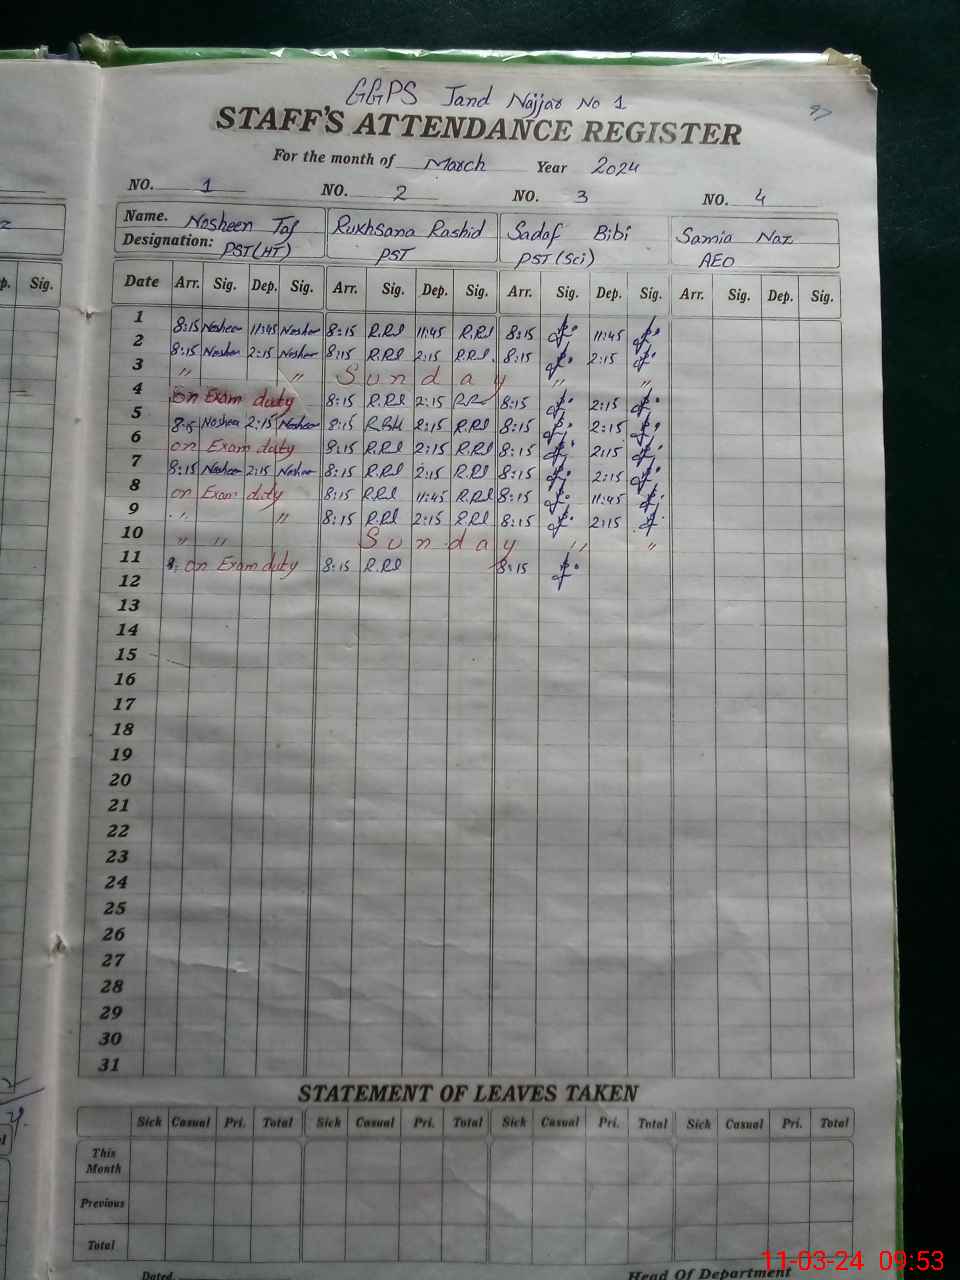 GGPS Jand Najjar No 1
STAFF'S ATTENDANCE REGISTER
For the month of March Year 2024
NO. 1 NO. 2 NO. 3 NO. 4
Name. Nosheen Taj Rukhsana Rashid Sadaf Bibi Samia Naz
Designation: PST(HT) PST PST (Sci) AEO
p. Sig. Date Arr. Sig. Dep. Sig. Arr. Sig. Dep. Sig. Arr. Sig. Dep. Sig. Arr. Sig. Dep. Sig.
1 8:15 Nosheen 11:45 Nosheen 8:15 R.Rd 11:45 R.Rd 8:15 11:45
2 8:15 Nosheen 2:15 Nosheen 8:15 R.Rd 2:15 R.Rd. 8:15 2:15
3 " " Sunday " "
4 on Exam duty 8:15 R.Rd 2:15 R.Rd 8:15 2:15
5 8:15 Nosheen 2:15 Nosheen 8:15 2:15 R.Rd 8:15 2:15
6 on Exam duty 8:15 R.Rd 2:15 R.Rd 8:15 2:15
7 8:15 Nosheen 2:15 Nosheen 8:15 R.Rd 2:15 R.Rd 8:15 2:15
8 on Exam duty 8:15 R.Rd 11:45 R.Rd 8:15 11:45
9 " " 8:15 R.Rd 2:15 R.Rd 8:15 2:15
10 " " Sunday " "
11 8: on Exam duty 8:15 R.Rd 8:15
12
13
14
15
16
17
18
19
20
21
22
23
24
25
26
27
28
29
30
31
STATEMENT OF LEAVES TAKEN
Sick Casual Pri. Total Sick Casual Pri. Total Sick Casual Pri. Total Sick Casual Pri. Total
This Month
Previous
Total
Dated. Head Of Department
11-03-24 09:53